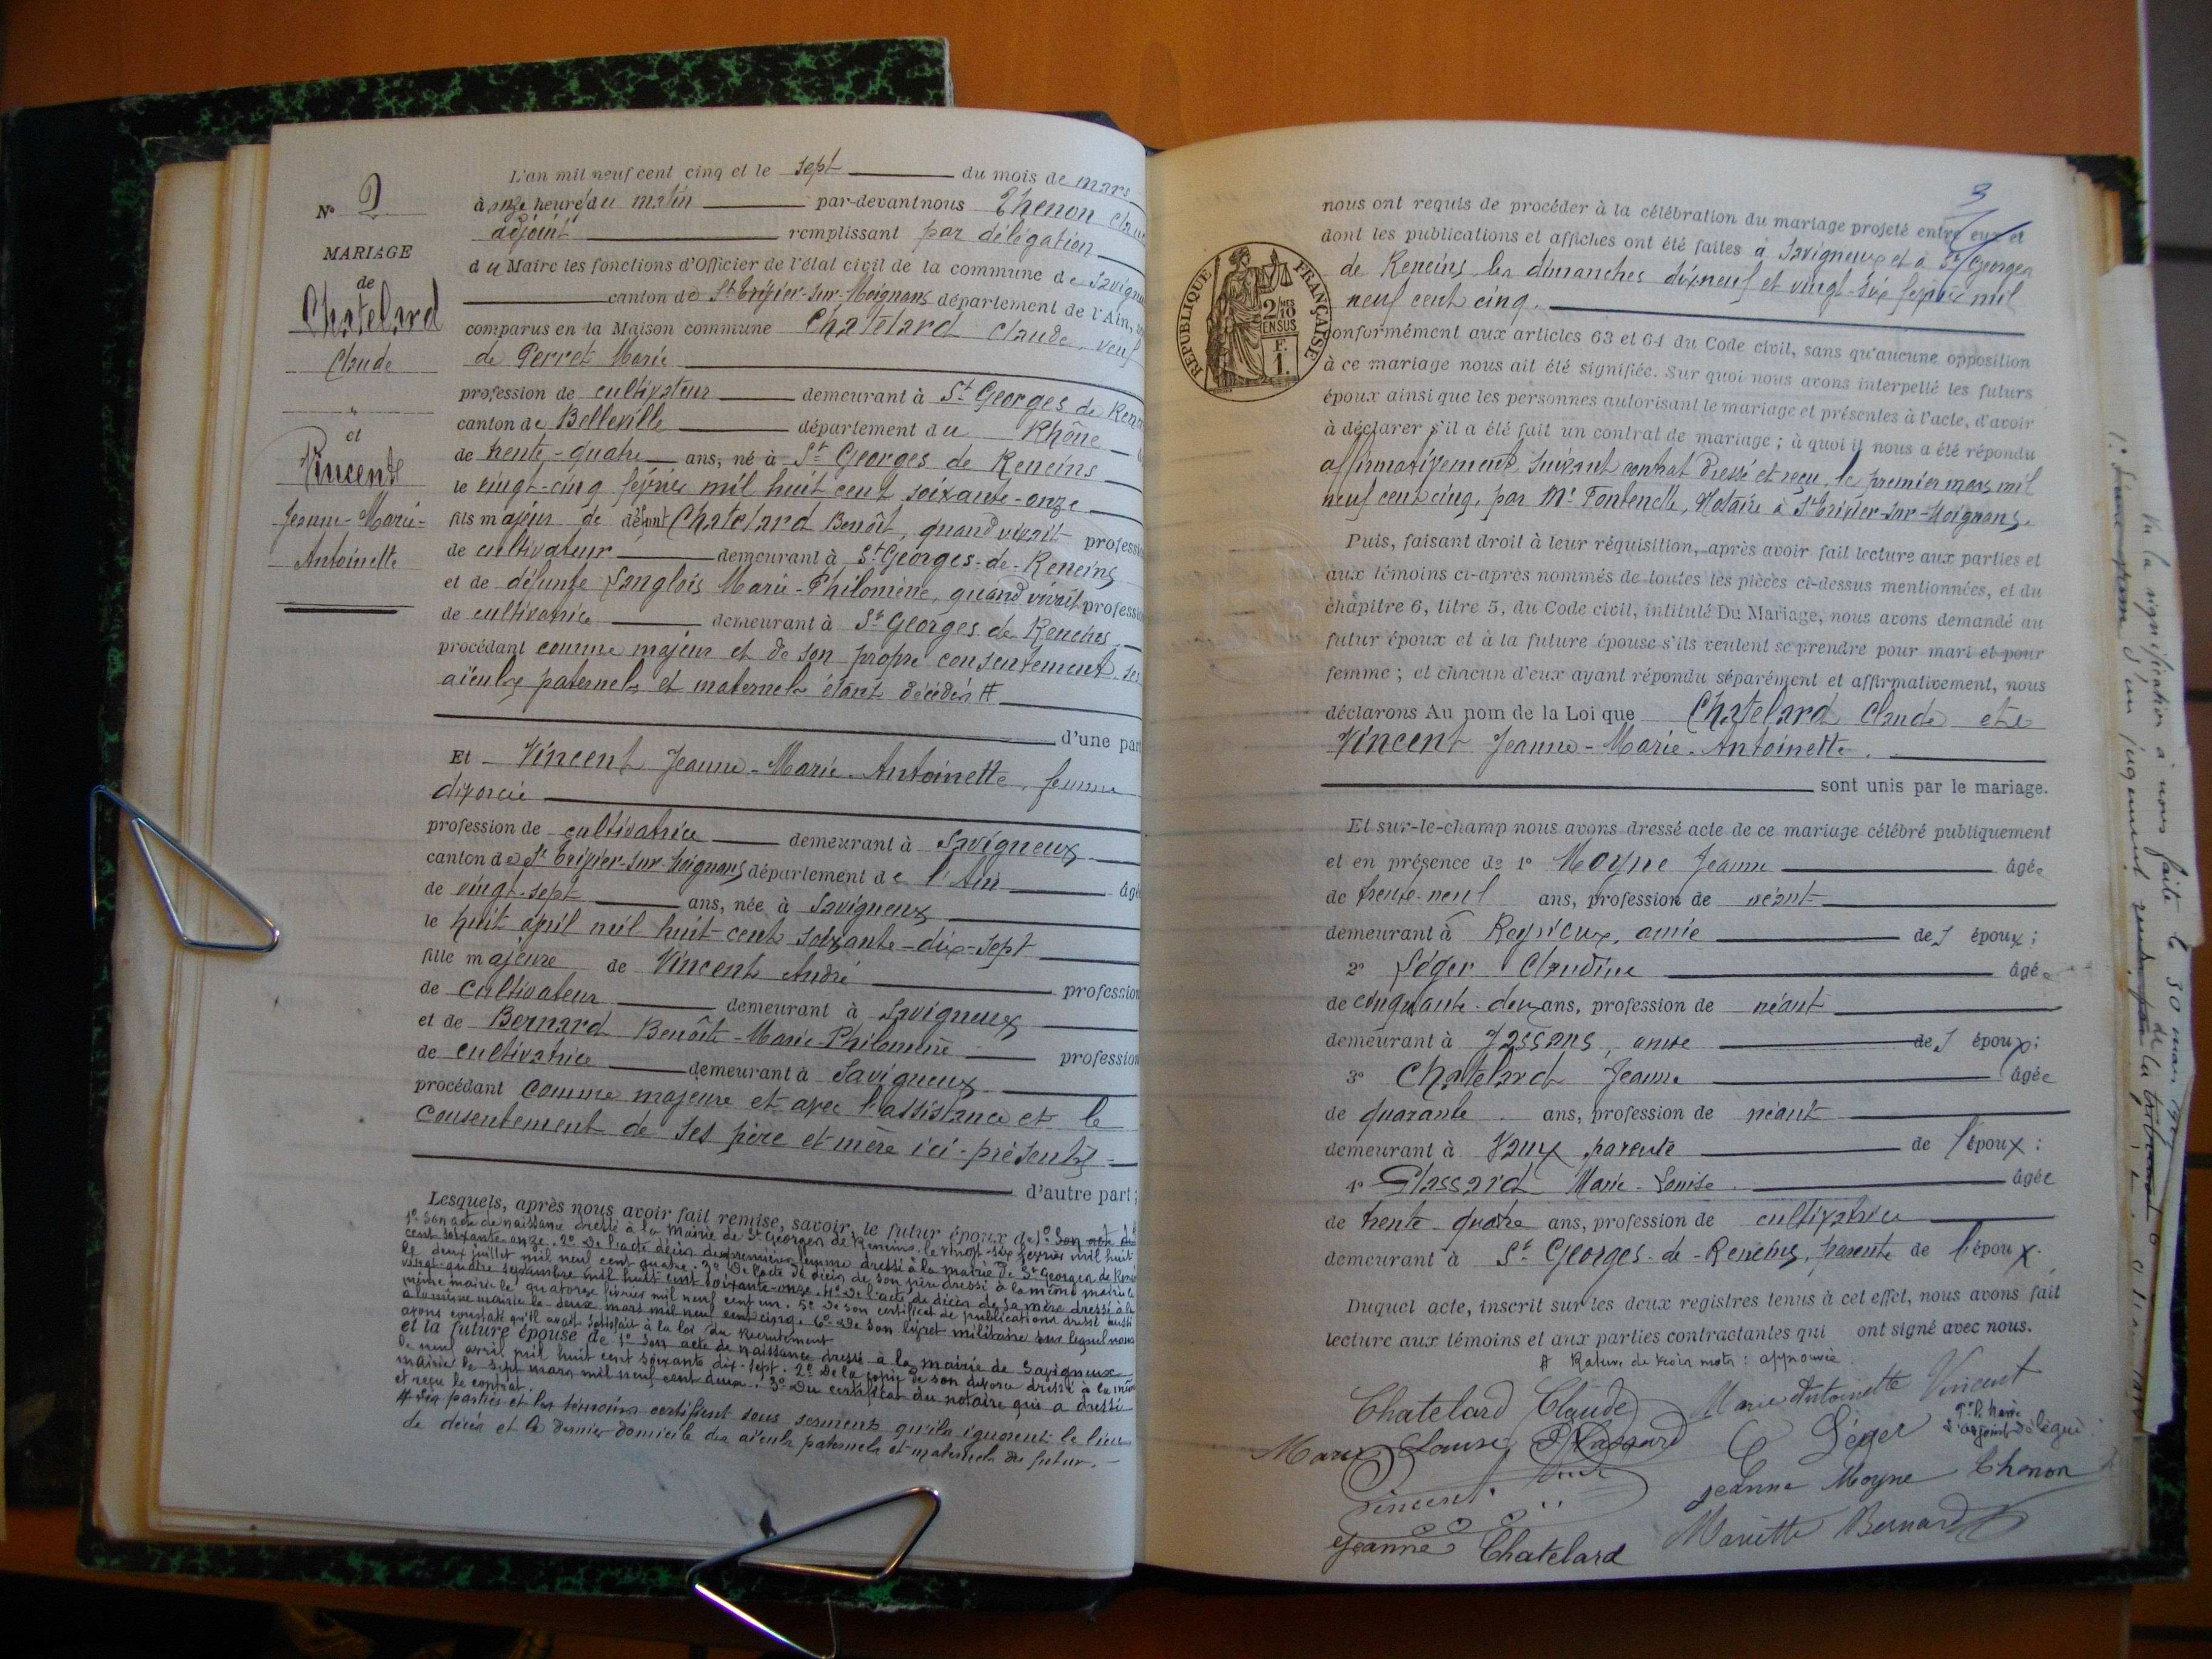 N° 2
MARIAGE
de
Chatelard
Claude
"
et
Vincent
Jeanne-Marie-
Antoinette
L'an mil neuf cent cinq et le sept du mois de mars
à onze heure du matin par-devant nous Thenon Clau
adjoint remplissant par délégation
du Maire les fonctions d'Officier de l'état civil de la commune de Savign
canton de St Trivier-sur-Moignans département de l'Ain,
comparus en la Maison commune Chatelard Claude, veuf
de Perret Marie
profession de cultivateur demeurant à St Georges de Ren
canton de Belleville département du Rhône
de trente-quatre ans, né à St Georges de Reneins
le vingt-cinq février mil huit cent soixante-onze
fils majeur de défunt Chatelard Benoît, quand vivait professi
de cultivateur demeurant à St Georges-de-Reneins
et de défunte Langlois Marie-Philomène, quand vivait professi
de cultivatrice demeurant à St Georges de Reneins
procédant comme majeur et de son propre consentement, ses
aïeuls paternels et maternels étant décédés #
d'une par
Et Vincent Jeanne-Marie-Antoinette, femme
divorcée
profession de cultivatrice demeurant à Savigneux
canton de St Trivier-sur-Moignans département de l'Ain âgé
de vingt-sept ans, née à Savigneux
le huit avril mil huit-cent soixante-dix-sept
fille majeure de Vincent André profession
de cultivateur demeurant à Savigneux
et de Bernard Benoîte-Marie-Philomène profession
de cultivatrice demeurant à Savigneux
procédant comme majeure et avec l'assistance et le
consentement de ses père et mère ici-présents
d'autre part;
Lesquels, après nous avoir fait remise, savoir, le futur époux de 1° Son acte de
1° Son acte de naissance dressé à la Mairie de St Georges de Reneins, le vingt-six février mil huit
cent soixante-onze. 2° De l'acte décès de sa première femme dressé à la mairie de St Georges de Renei
le deux juillet mil neuf cent quatre. 3° De l'acte de décès de son père dressé à la même mairie le
vingt-quatre septembre mil huit cent soixante-onze. 4° De l'acte de décès de sa mère dressé à la
même mairie le quatorze février mil neuf cent un. 5° De son certificat de publications dressé aussi
à la même mairie le deux mars mil neuf cent cinq. 6° De son livret militaire sur lequel nous
avons constaté qu'il avait satisfait à la loi du Recrutement
et la future épouse de 1° Son acte de naissance dressé à la mairie de Savigneux
le neuf avril mil huit cent soixante dix-sept. 2° De la copie de son divorce dressé à la même
mairie le sept mars mil neuf cent deux. 3° Du certificat du notaire qui a dressé
et reçu le contrat.
# Les parties et les témoins certifient sous serment qu'ils ignorent le lieu
de décès et le dernier domicile des aïeuls paternels et maternels du futur.
3
nous ont requis de procéder à la célébration du mariage projeté entre eux et
dont les publications et affiches ont été faites à Savigneux et à St Georges
de Reneins les dimanches dix-neuf et vingt-six février mil
neuf cent cinq.
REPUBLIQUE FRANÇAISE
2/10 MES
EN SUS
F.
1.
conformément aux articles 63 et 64 du Code civil, sans qu'aucune opposition
à ce mariage nous ait été signifiée. Sur quoi nous avons interpellé les futurs
époux ainsi que les personnes autorisant le mariage et présentes à l'acte, d'avoir
à déclarer s'il a été fait un contrat de mariage ; à quoi il nous a été répondu
affirmativement, suivant contrat dressé et reçu, le premier mars mil
neuf cent cinq, par Me Fontenelle, Notaire à St Trivier-sur-Moignans.
Puis, faisant droit à leur réquisition, après avoir fait lecture aux parties et
aux témoins ci-après nommés de toutes les pièces ci-dessus mentionnées, et du
chapitre 6, titre 5, du Code civil, intitulé Du Mariage, nous avons demandé au
futur époux et à la future épouse s'ils veulent se prendre pour mari et pour
femme ; et chacun d'eux ayant répondu séparément et affirmativement, nous
déclarons Au nom de la Loi que Chatelard Claude et
Vincent Jeanne-Marie-Antoinette.
sont unis par le mariage.
Et sur-le-champ nous avons dressé acte de ce mariage célébré publiquement
et en présence de 1° Moyne Jeanne âgée
de trente-neuf ans, profession de néant
demeurant à Reyrieux, amie des époux ;
2° Léger Claudine âgée
de cinquante-deux ans, profession de néant
demeurant à Jassans, amie des époux ;
3° Chatelard Jeanne âgée
de quarante ans, profession de néant
demeurant à Vaux parente de l'époux :
4° Glassard Marie-Louise. âgée
de trente-quatre ans, profession de cultivatrice
demeurant à St Georges-de-Reneins, parente de l'époux.
Duquel acte, inscrit sur les deux registres tenus à cet effet, nous avons fait
lecture aux témoins et aux parties contractantes qui ont signé avec nous.
# Rature de trois mots : approuvée.
Chatelard Claude Marie Antoinette Vincent
Marie Louise Glassard C Léger Pr le Maire
L'adjoint délégué :
Vincent Jeanne Moyne Thenon
Jeanne Chatelard Mariette Bernard
Vu la signification à nous faite le 30 mai
1° d'un jugement rendu de la